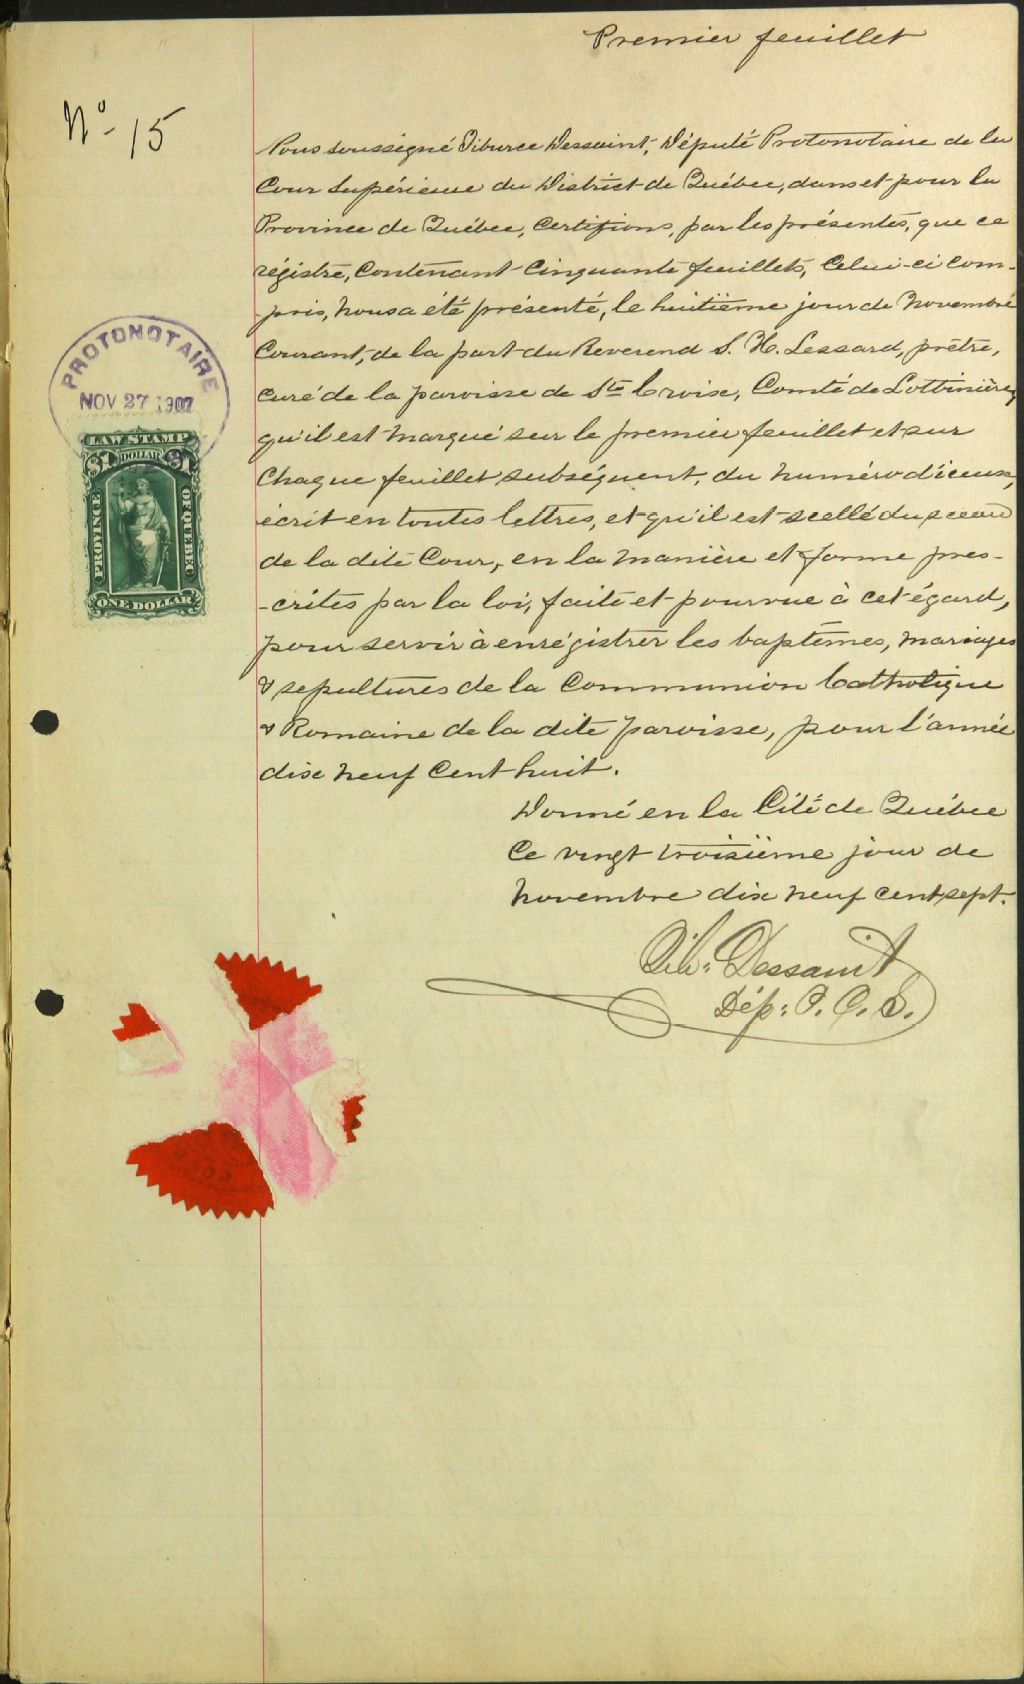 Premier feuillet
No- 15
Nous soussigné Tiburce Dessaint, Député Protonotaire de la
Cour Supérieure du District de Québec, dans et pour la
Province de Québec, Certifions, par les présentes, que ce
régistre, Contenant Cinquante feuillets, Celui-ci Com-
pris, nous a été présenté, le huitième jour de Novembre
Courant, de la part du Reverend S. H. Lessard, prêtre,
curé de la paroisse de Ste Croix, Comté de Lotbinière,
qu'il est marqué sur le premier feuillet et sur
Chaque feuillet subséquent, du numéro d'iceux,
écrit en toutes lettres, et qu'il est scellé du sceau
de la dite Cour, en la manière et forme pres-
-crites par la loi, faite et pourvue à cet égard,
pour servir à enrégistrer les baptêmes, mariages
& sepultures de la Communion Catholique
& Romaine de la dite paroisse, pour l'année
dix neuf Cent huit.
Donné en la Cité de Québec
Ce vingt troisième jour de
Novembre dix neuf cent sept.
Tib: Dessaint
Dép: P. C. S.
PROTONOTAIRE
NOV 27 1907
LAW STAMP
$1 DOLLAR $1
PROVINCE OF QUEBEC
ONE DOLLAR